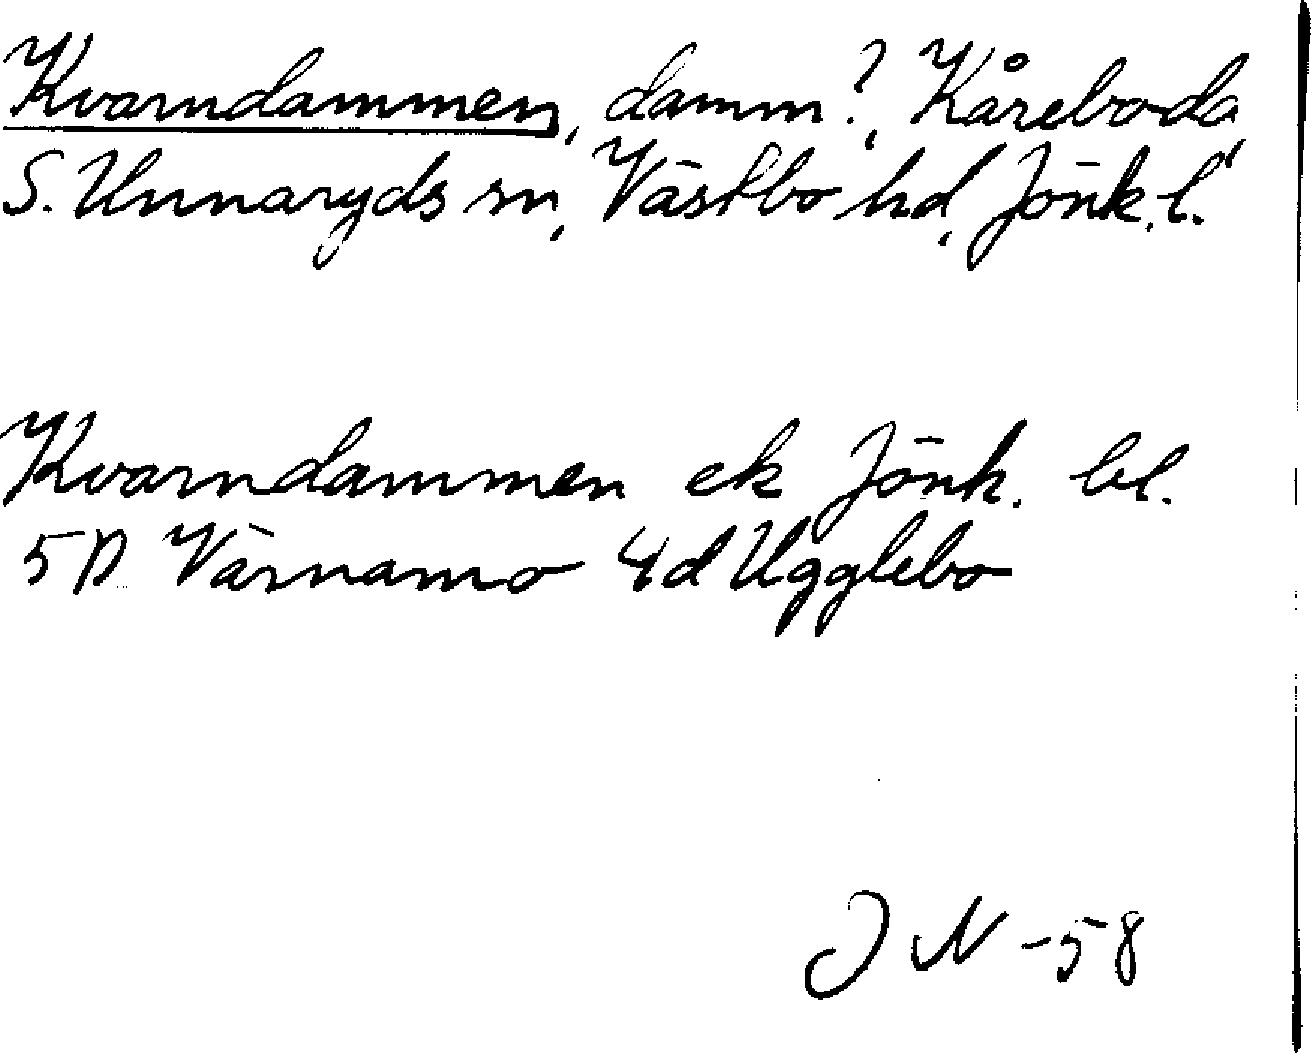 Kvarndammen, damm?, Kåreboda,
S. Unnaryds sn, Västbo hd, Jönk. l.
Kvarndammen ek Jönk. bl.
5D Värnamo 4d Ugglebo
JN -58